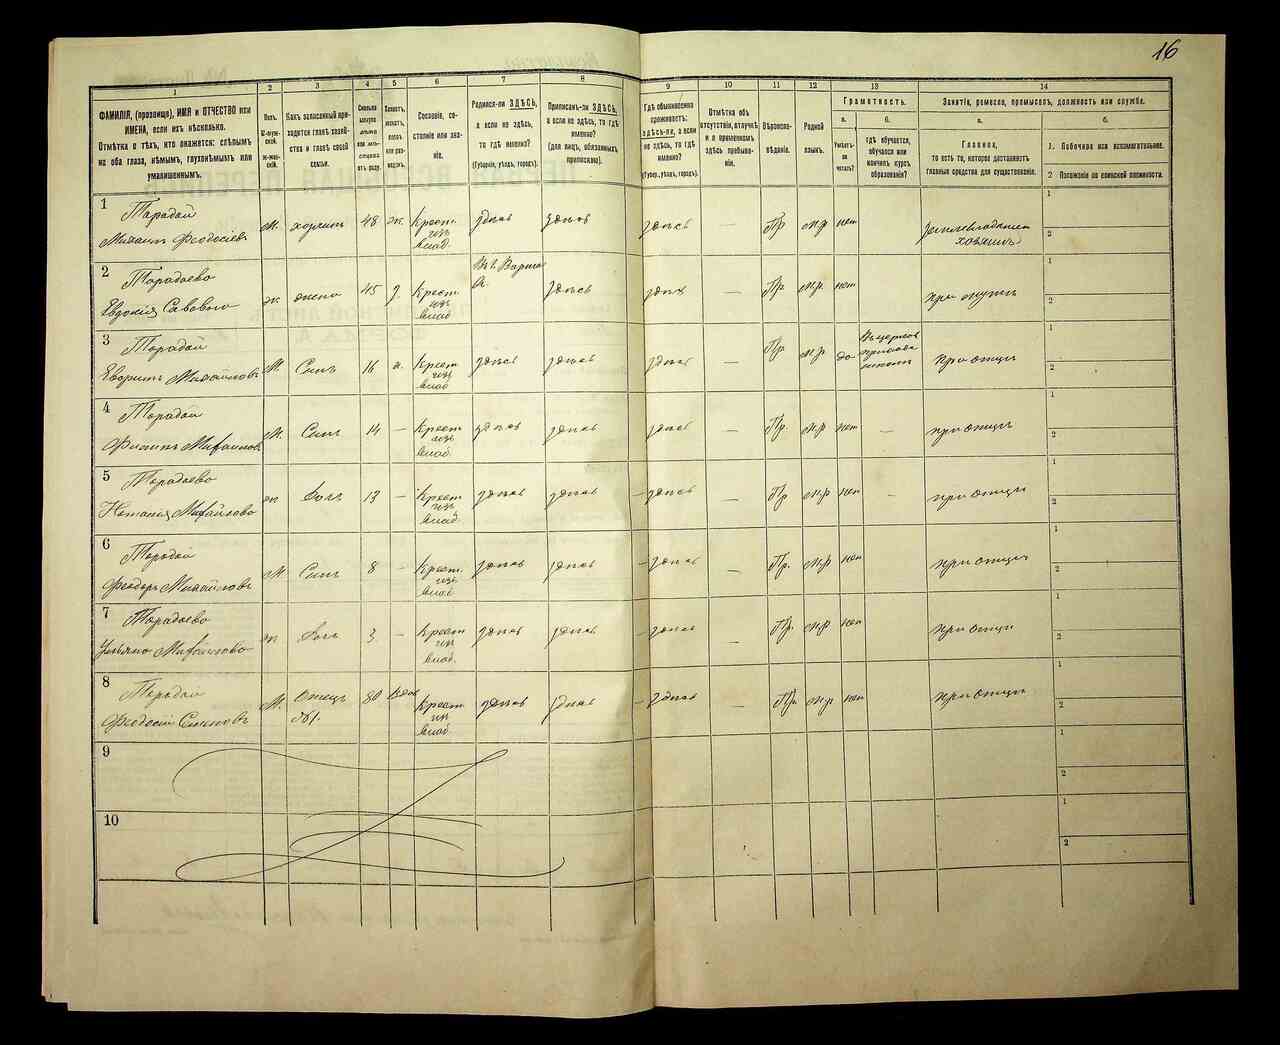 16
1
2
3
4
5
6
7
8
9
10
11
12
13
14
ФАМИЛІЯ, (прозвище), ИМЯ и ОТЧЕСТВО или
ИМЕНА, если ихъ нѣсколько.
Отмѣтка о тѣхъ, кто окажется: слѣпымъ
на оба глаза, нѣмымъ, глухонѣмымъ или
умалишеннымъ.
Полъ.
М-муж-
ской.
Ж-жен-
скій.
Какъ записанный при-
ходится главѣ хозяй-
ства и главѣ своей
семьи.
Сколько
минуло
лѣтъ
или мѣ-
сяцевъ
отъ роду.
Холостъ,
женатъ,
вдовъ
или раз-
веденъ.
Сословіе, со-
стояніе или зва-
ніе.
Родился-ли ЗДѢСЬ,
а если не здѣсь,
то гдѣ именно?
(Губернія, уѣздъ, городъ).
Приписанъ-ли ЗДѢСЬ,
а если не здѣсь, то гдѣ
именно?
(для лицъ, обязанныхъ
припискою).
Гдѣ обыкновенно
проживаетъ:
здѣсь-ли, а если
не здѣсь, то гдѣ
именно?
(Губер., уѣздъ, городъ).
Отмѣтка объ
отсутствіи, отлучкѣ
и о временномъ
здѣсь пребыва-
ніи.
Вѣроиспо-
вѣданіе.
Родной
языкъ.
Грамотность.
а.
Умѣетъ-
ли
читать?
б.
гдѣ обучается,
обучался или
кончилъ курсъ
образованія?
Занятіе, ремесло, промыселъ, должность или служба.
а.
Главное,
то есть то, которое доставляетъ
главныя средства для существованія.
б.
1. Побочное или вспомогательное.
2 Положеніе по воинской повинности.
1
Тарадай
Михаилъ Феодосіевъ
М. хозяинъ 48 ж. Крест. изъ влад. здѣсь здѣсь здѣсь — Пр мр нет
хозяинъ
1
2
2
Тарадаево
Евдокія Савовно
ж жена 45 Крест изъ влад здѣсь здѣсь — Пр мр. нет при мужѣ
1
2
3
Тарадай
Михайловъ
М Сынъ 16 Крест изъ влад здѣсь здѣсь здѣсь — Пр мр да при отцѣ
1
2
4
Тарадай
Филипъ Михайловъ
М. Сынъ 14 — Крест изъ влад. здѣсь здѣсь здѣсь — Пр. мр нет — при отцѣ
1
2
5
Тарадаево
Наталія Михайлово
ж. Дочь 13 — Крест изъ влад. здѣсь здѣсь здѣсь — Пр мр нет — при отцѣ
1
2
6
Тарадай
Феодоръ Михайловъ
М. Сынъ 8 — Крест. изъ влад. здѣсь здѣсь здѣсь — Пр. мр нет при отцѣ
1
2
7
Тарадаево
Ульяно Михайлово
ж Дочь 3 — Крест изъ влад. здѣсь здѣсь здѣсь — Пр. мр нет при отцѣ
1
2
8
Тарадай
Феодосій
М. Отецъ 80 вдов Крест изъ влад здѣсь здѣсь здѣсь — Пр. мр нет при отцѣ
1
2
9
1
2
10
1
2